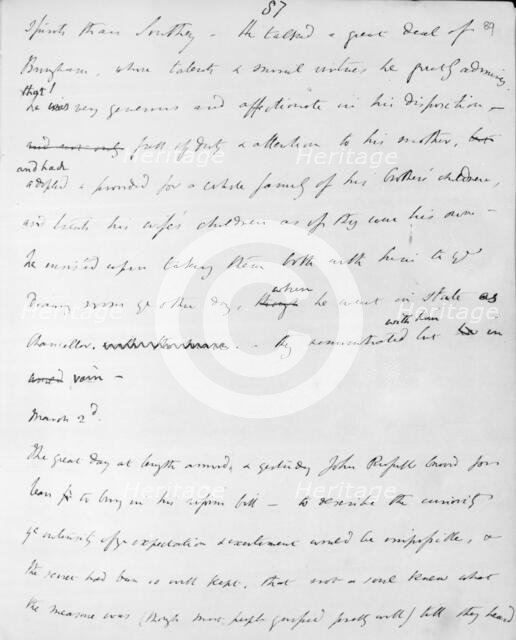 87
89
Spirits than Southey – He talked a great deal of
Brougham, whose talents & moral virtues he greatly admires
that!
he was very generous and affectionate in his disposition –
and not only full of duty & attention to his mother, but
and had
adopted & provided for a whole family of his brother's children,
and treats his wife's children as if they were his own –
he insisted upon taking them both with him to ye
when
Drawing room ye other day, though he went in state as
with him
Chancellor. – they remonstrated but in
vain –
March 2d.
The great day at length arrived, & yesterday John Russell moved for
leave to bring in his reform bill – to describe the curiosity
ye intensity of ye expectation & excitement would be impossible, &
the secret had been so well kept, that not a soul knew what
the measure was (though most people guessed pretty well) till they heard
heritage Images
heritage Images
heritage Images
heritage Images